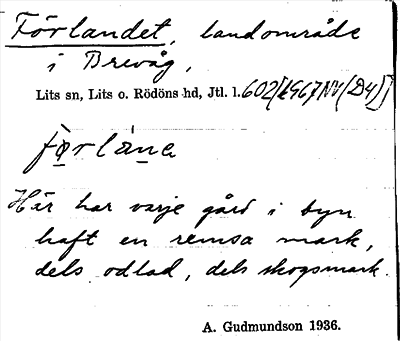 Förlandet, landområde
i Brevåg,
Lits sn, Lits o. Rödöns hd, Jtl. l. 602[19G7NV(D4)]
fø̀rlána
Här har varje gård i byn
haft en remsa mark,
dels odlad, dels skogsmark.
A. Gudmundson 1936.